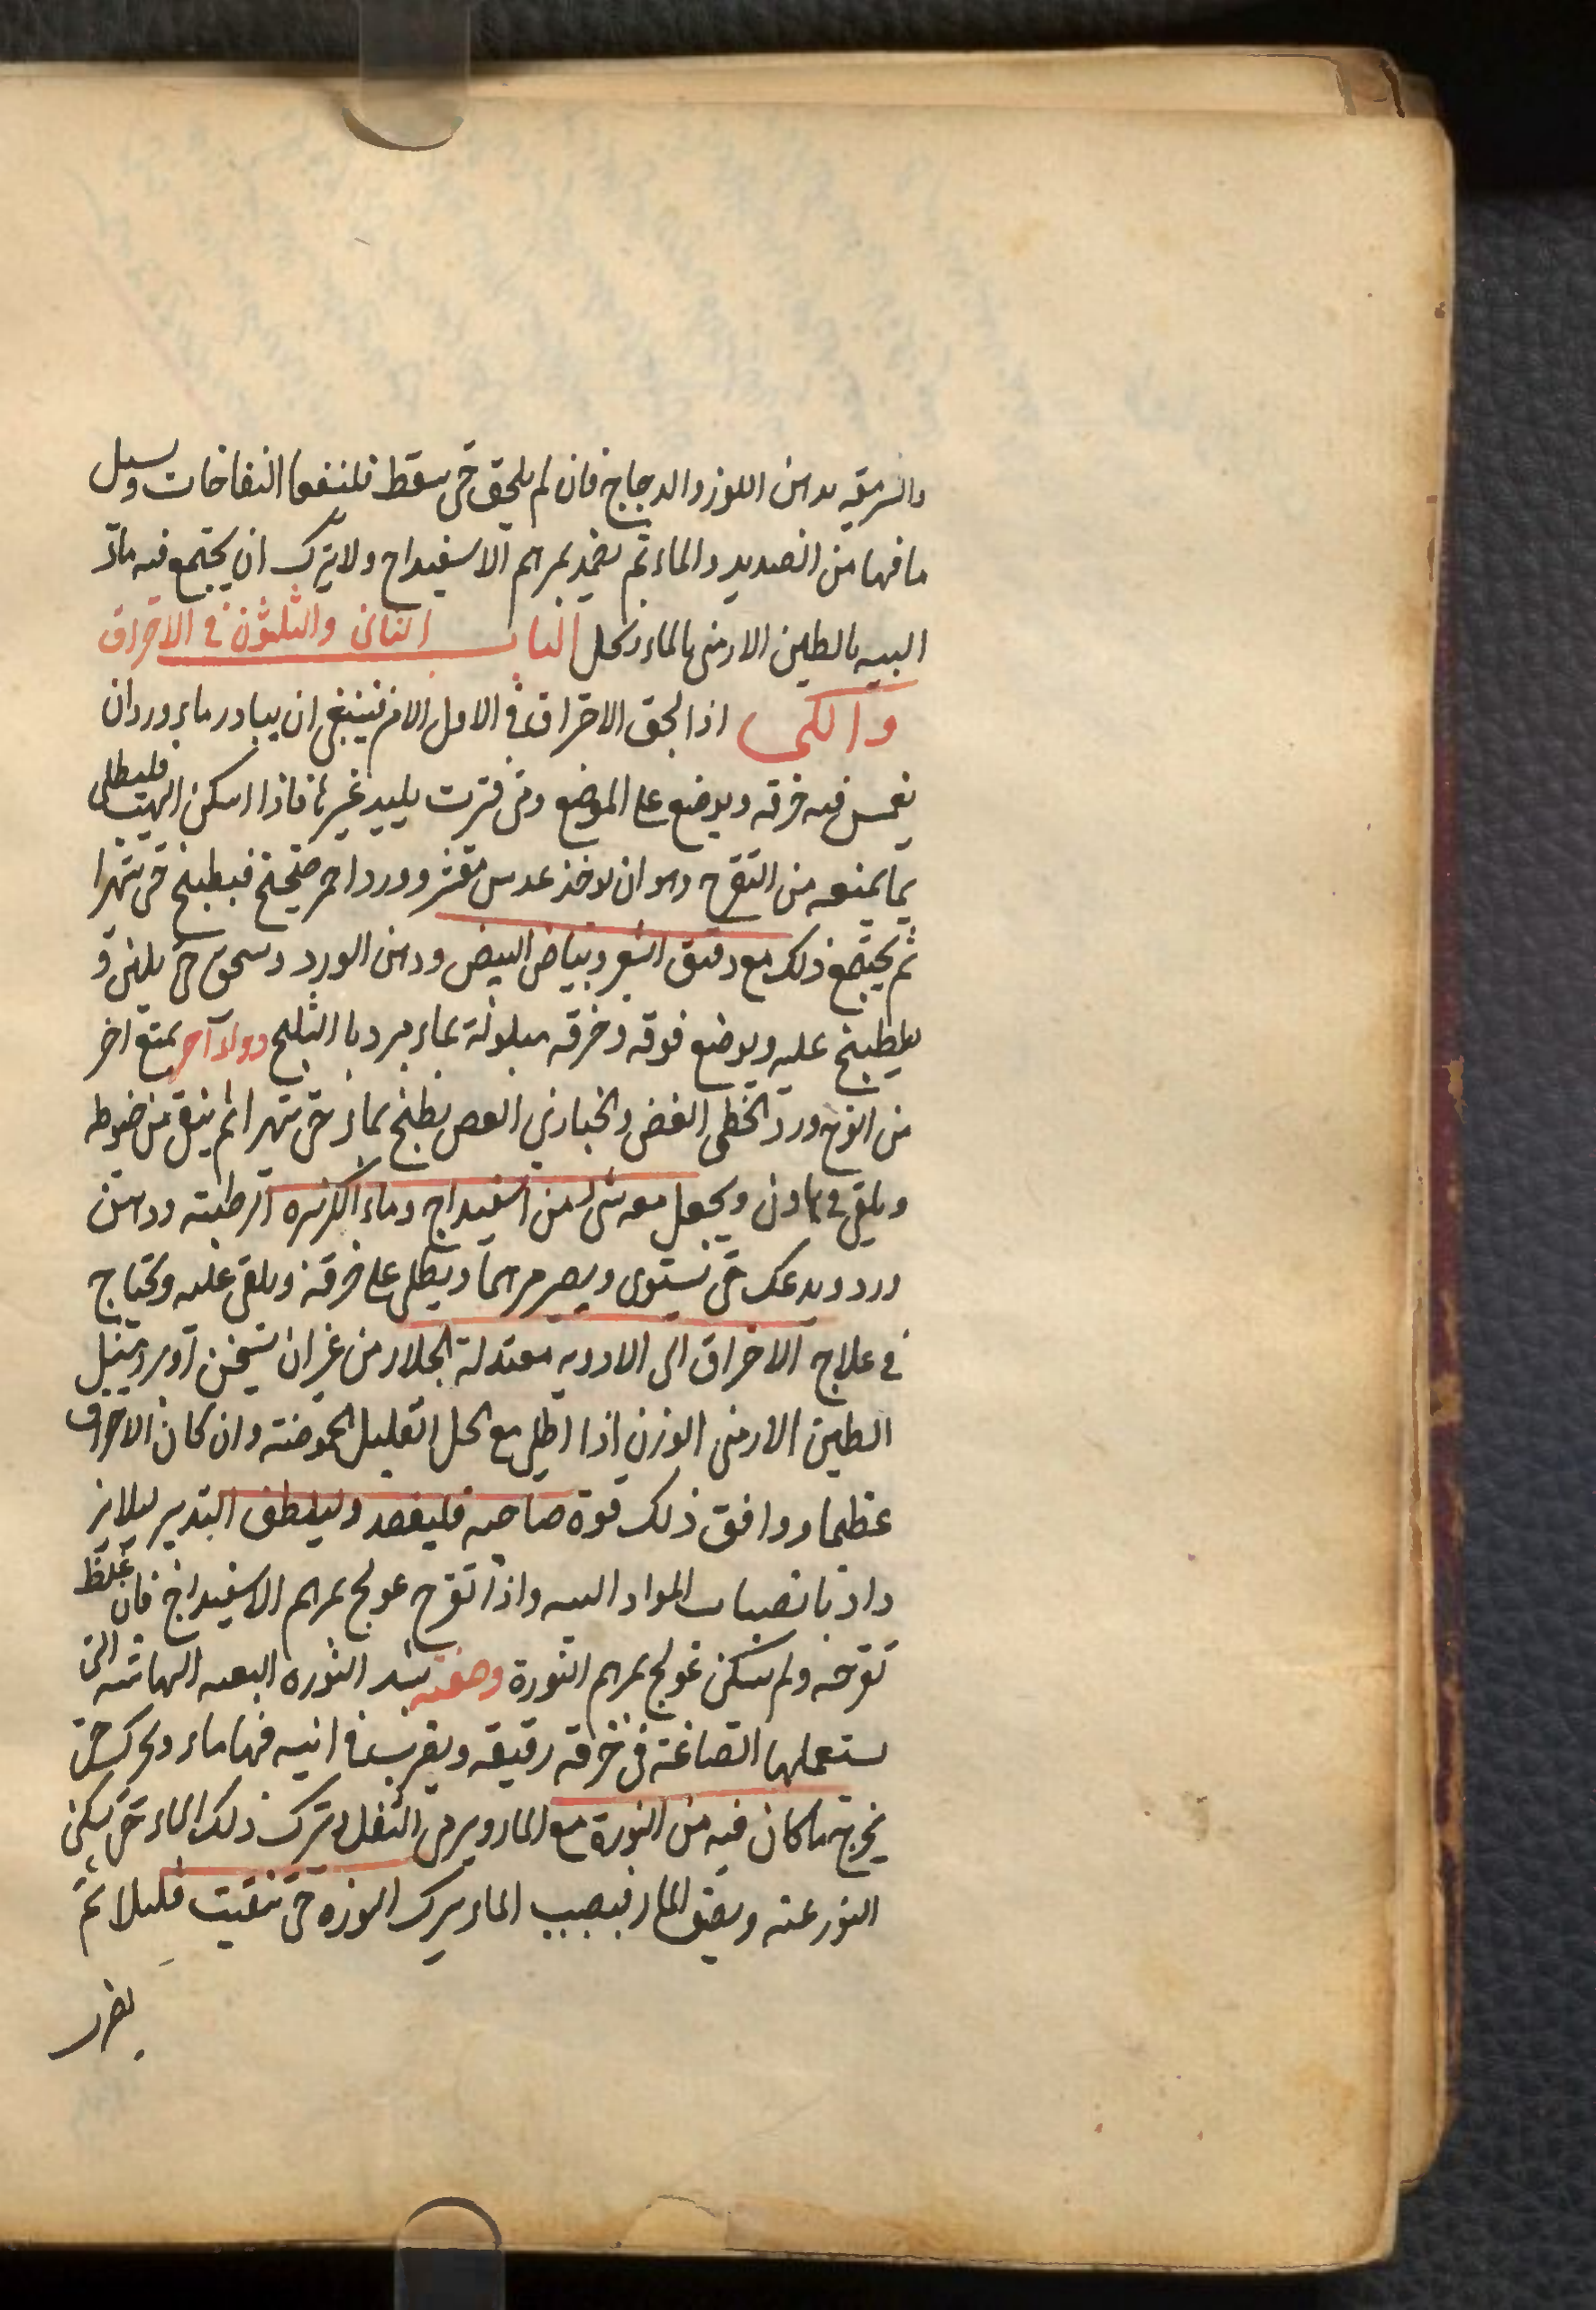 والشرمقيه بدهن اللوز والدجاج فان لم يلحق حتى سقط فلنفقا النفاخات وسيل
ما فيها من الصديد والماء ثم يضمد بمرهم الاسفيداج ولا يترك ان يجتمع فيه مادة
اليه بالطين الارمنى بالماء وكحل الباب الثانى والثلثون فى الاحتراق
والكى اذا لحق الاحتراق فى الاول الامر فينبغى ان يبادر بماء ورد ان
يغمس فيه خرقه ويوضع على الموضع ومتى فترت بليد غيرها فاذا اسكن الهيب فليطلى
بما يمنعه من التقرح وهو ان يوخذ عدس مقشر وورد احمر صحيح فيطبخ حتى يتهرا
ثم يجتمع ذلك مع دقيق الشعير وبياض البيض ودهن الورد وسحق حتى يلين و
يلطبخ عليه ويوضع فوقه وخرقه مبلولة بماء مبرد با الثلج دواء آخر يمنع اخر
من التوح ورد الخطمى الغض والخبازى الغض يطبخ بماء حتى يتهرا ثم ينقى من خيوطه
ويلقى فى هاون ويجعل معه شئ من اسفيداج وماء الكزبره الرطبته ودهن
ورد ويدعك حتى تستوى ويصير مرهما ويطلى على خرقة ويلقى عليه وتحتاج
فى علاج الاحراق الى الادويه معتدلة الجلاء من غير ان تسخن او برد مثل
الطين الارمنى الوزن اذا اطلى مع الخل القليل الحموضته وان كان الاحراق
عظيما ووافق ذلك قوة صاحبه فليفصد وليلطف التدبير ليلا يز
داد بانصباب المواد اليه واذا تقرح عولج بمرهم الاسفيداج فان غلظ
تقرحه ولم تسكن عولج بمرهم النورة وصفته تشد النوره البعه الهاشه التى
يستعملها الصاغة فى خرقه رقيقه ويضرب فى انيه فيها ماء ويحرك حتى
يخرج ما كان فيه من النورة مع الماء ويرمى الثفل ويترك ذلك الماء حتى يسكن
النور عنه ويصفى الماء فيصب الماء يترك النوره حتى تنقيت قليلا ثم
يضرب